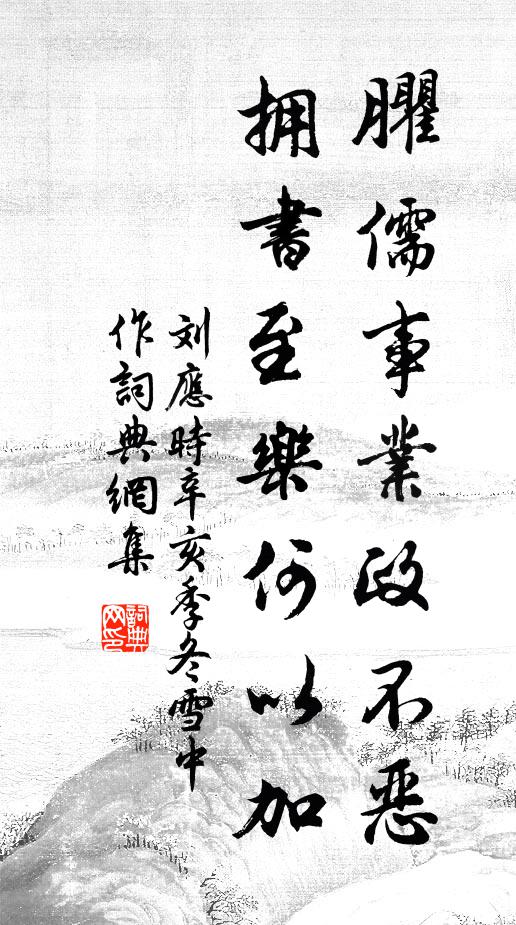 臞儒事業政不惡
擁書至樂何以加
刘應時辛亥季冬雪中
作詞典網集
詞典
网印